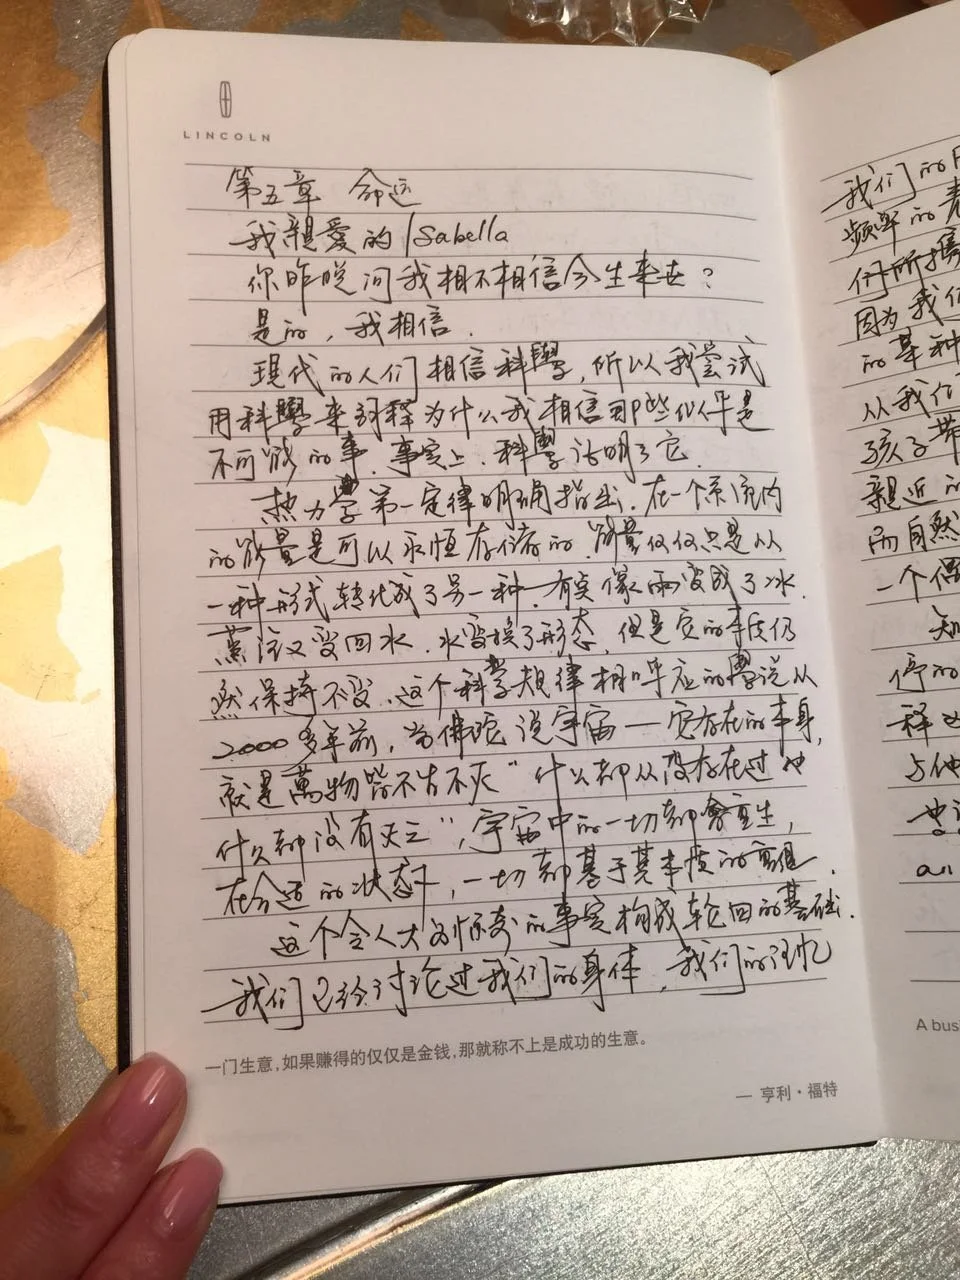 LINCOLN
第五章 命运
我親愛的 Isabella
你昨晚问我相不相信今生来世？
是的，我相信.
现代的人们相信科學，所以我尝试
用科學来解释为什么我相信那些似乎是
不可能的事.事实上.科學证明了它.
热力学第一定律明确指出.在一个系统内
的能量是可以永恒存储的.能量仅仅只是从
一种形式转化成了另一种.
蒸 又变回水.水变换了形态，但是它的本质仍
然保持不变.这个科学规律相呼应的學说从
2000多年前，当佛陀说宇宙一一它存在的本身，
就是萬物皆不古不灭“什么都从没存在过也
什么都没有灭亡”，宇宙中的一切都會重生，
在合适的状态下，一切都基于其本质的
这个令人大为惊奇的事实构成轮回的基础.
我们已经讨论过我们的身体，我们的记忆
一门生意，如果赚得的仅仅是金钱，那就称不上是成功的生意。
— 亨利·福特
我们的
频率的
们所
因为我们
的某种
从我们
了孩子带
親近的
而自然
一个偶
知
停的
释
与他
也
A busi